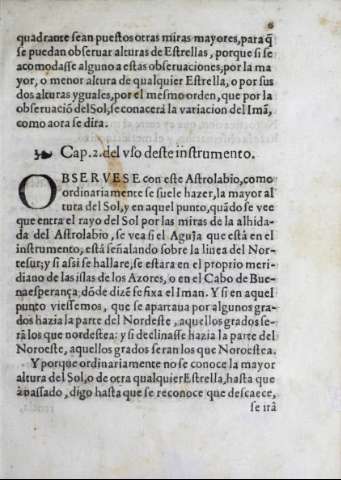 6
quadrante sean puestos otras miras mayores, para q̃
se puedan obseruar alturas de Estrellas, porque si se
acomodasse alguno a estas obseruaciones, por la ma
yor, o menor altura de qualquier Estrella, o por sus
dos alturas yguales, por el mesmo orden, que por la
obseruaciõ del Sol, se conacerà la variacion del Imã,
como aora se dira.
Cap. 2. del vso deste instrumento.
OBSERVESE con este Astrolabio, como
ordinariamente se suele hazer, la mayor al
tura del Sol, y en aquel punto, quãdo se vee
que entra el rayo del Sol por las miras de la alhida-
da del Astrolabio, se vea si el Aguja que està en el
instrumento, està señalando sobre la linea del Nor-
tesur; y si assi se hallare, se estara en el proprio meri-
diano de las islas de los Azores, o en el Cabo de Bue-
naesperança, dõde dizẽ se fixa el Iman. Y si en aquel
punto viessemos, que se apartaua por algunos gra-
dos hazia la parte del Nordeste, aquellos grados se-
rà los que nordestea: y si declinasse hazia la parte del
Noroeste, aquellos grados seran los que Noroestea.
Y porque ordinariamente no se conoce la mayor
altura del Sol, o de otra qualquier Estrella, hasta que
à passado, digo hasta que se reconoce que descaece,
se irà